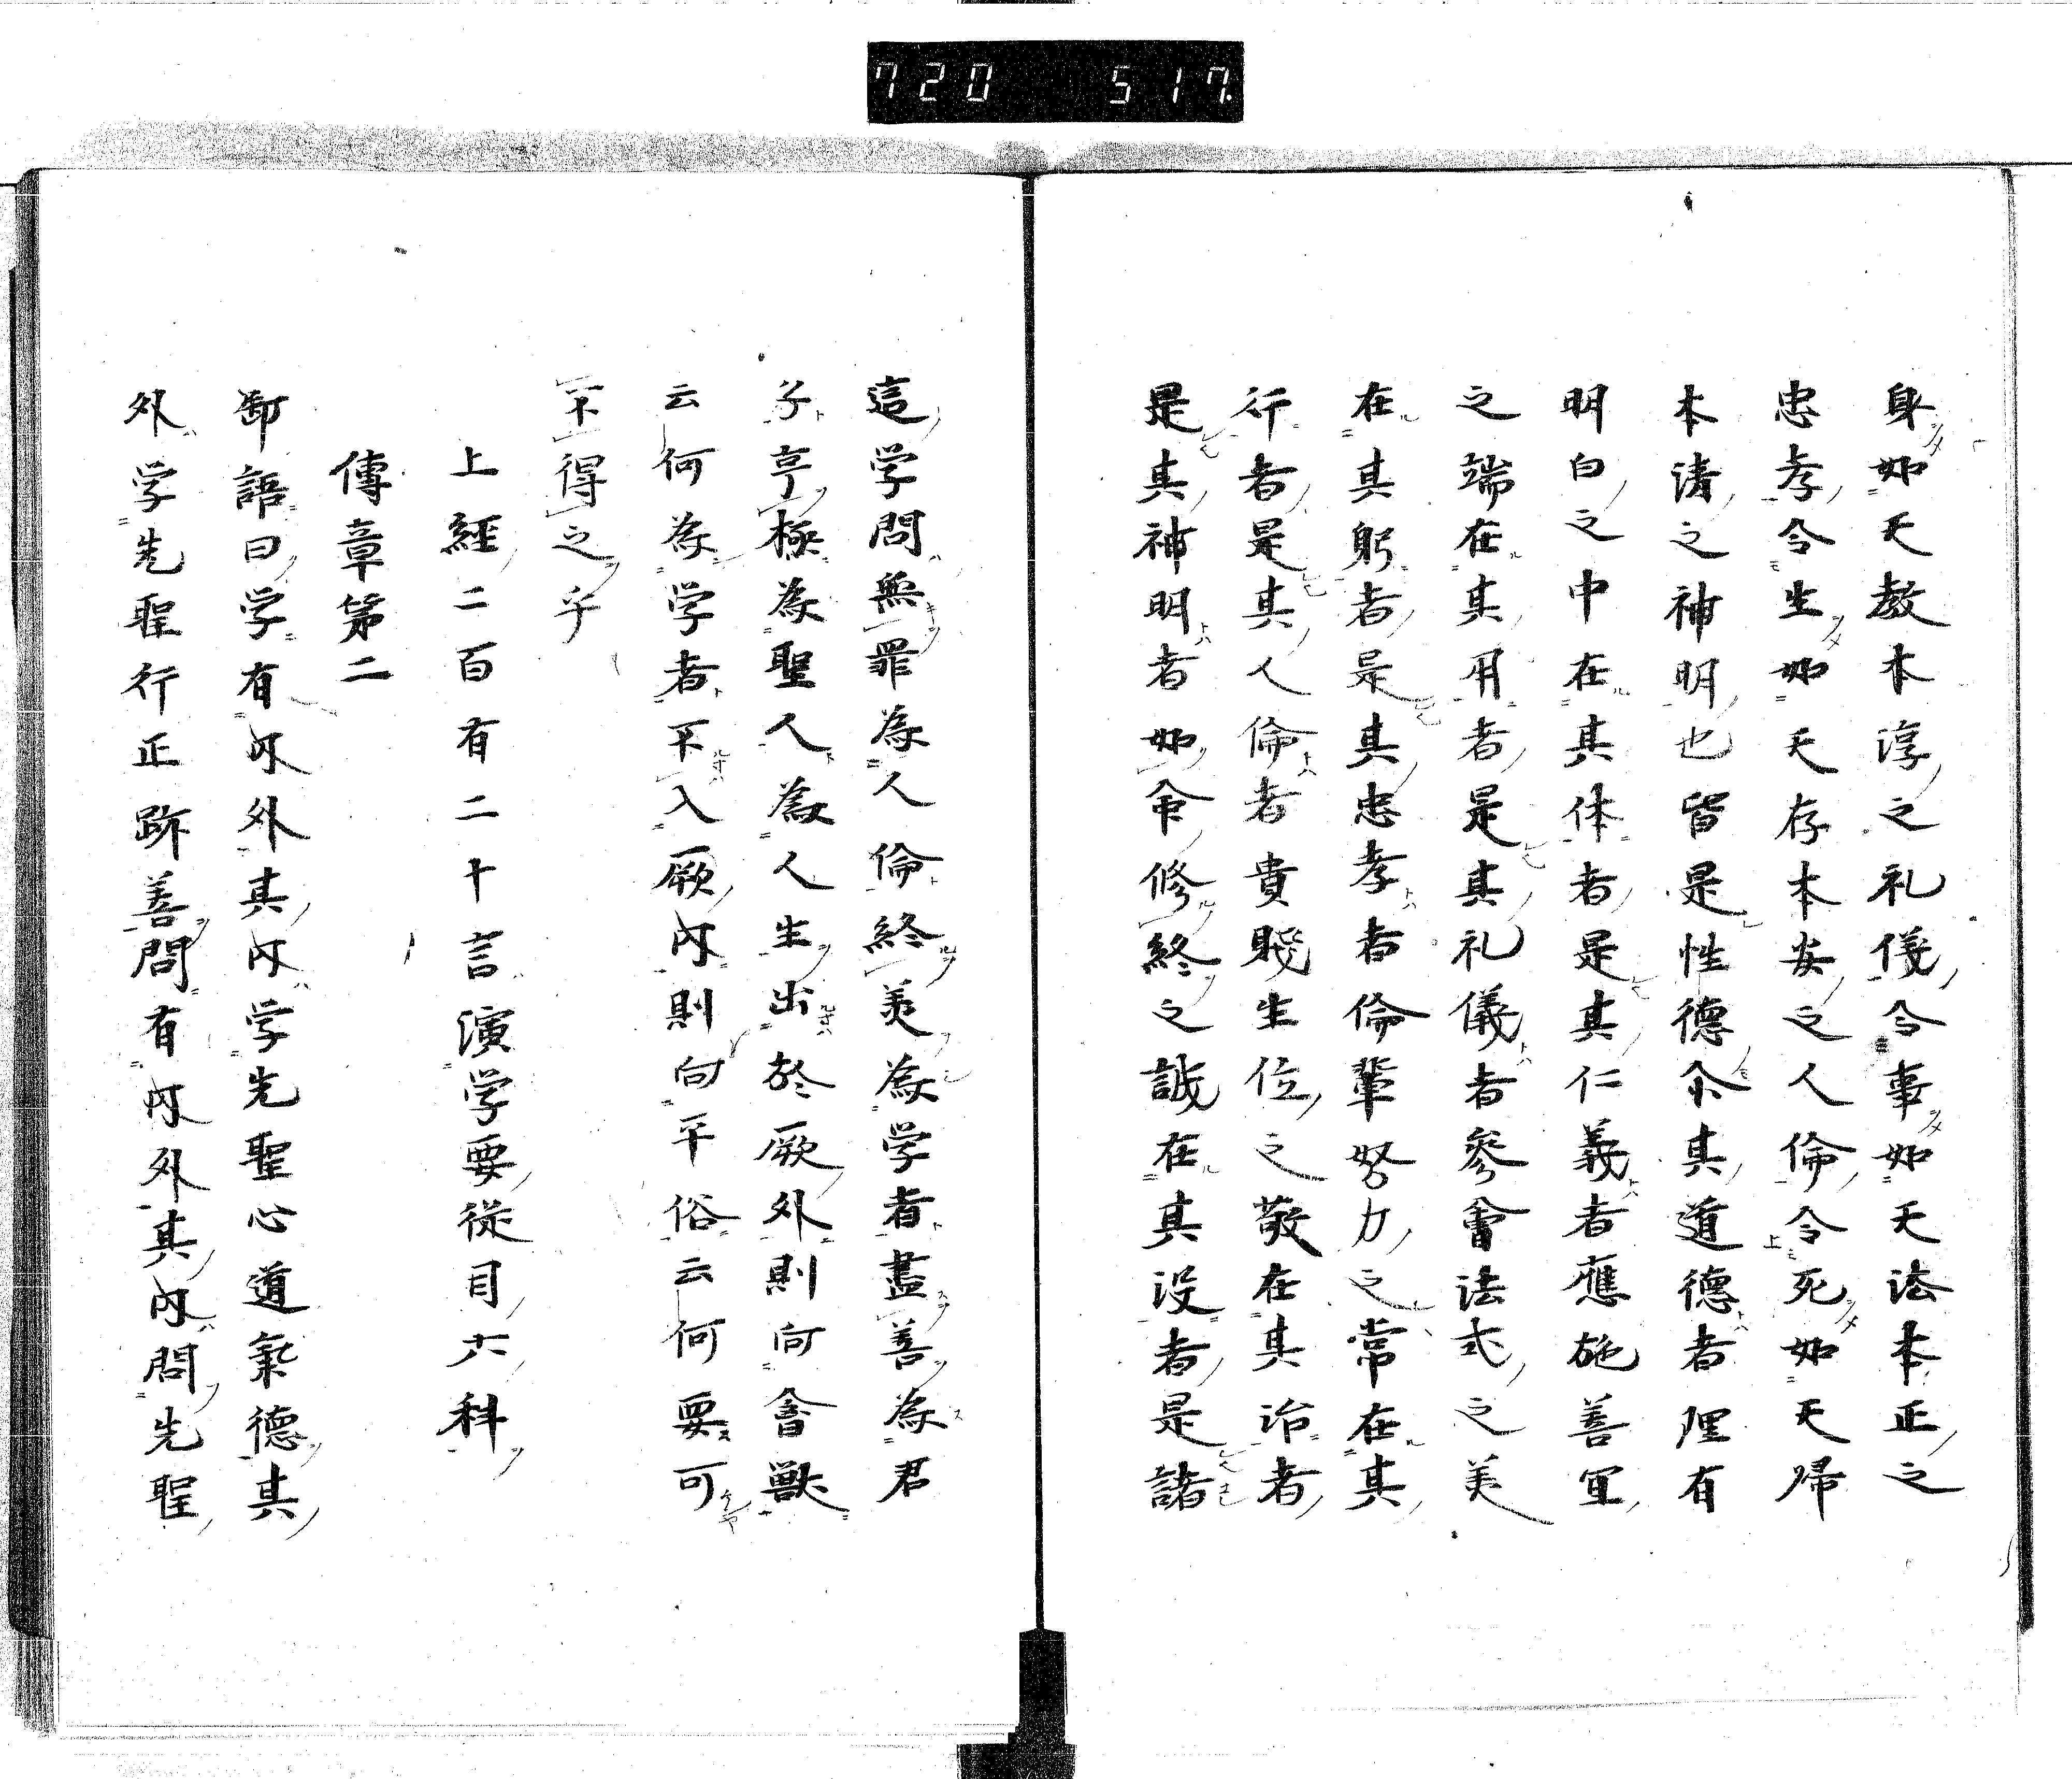 720 517.
身如天教本淳之礼儀令事如天法本正之
忠孝令生如天存本安之人倫令死如天帰
本清之神明也皆是性徳令其道徳者理有
明白之中在其体者是其仁義者應施善宜
之端在其用者是其礼儀者參會法式之美
在其躬者是其忠孝者倫輩努力之常在其
行者是其人倫者貴賤生位之敬在其治者
是其神明者如命修終之誠在其没者是諸
這学問無罪為人倫終美為学者盡善為君
子亨極為聖人為人生出於厥外則向會獣
云何為学者不入厥内則向平俗云何要可
不得之乎
上經二百有二十言演学要從目六科
傳章第二
御語曰学有内外其内学先聖心道氣徳其
外学先聖行正跡善問有内外其内問先聖